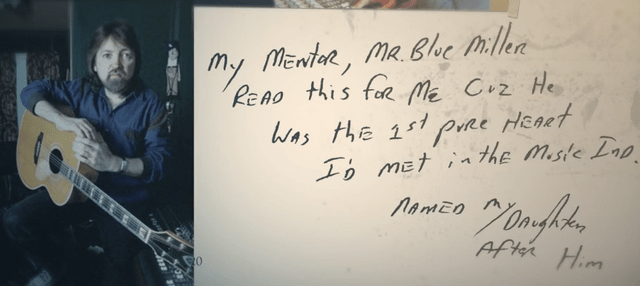 My Mentor, Mr. Blue Miller
Read this for me Cuz He
Was the 1st pure Heart
I'd met in the Music Ind.
Named my Daughter
After Him
20